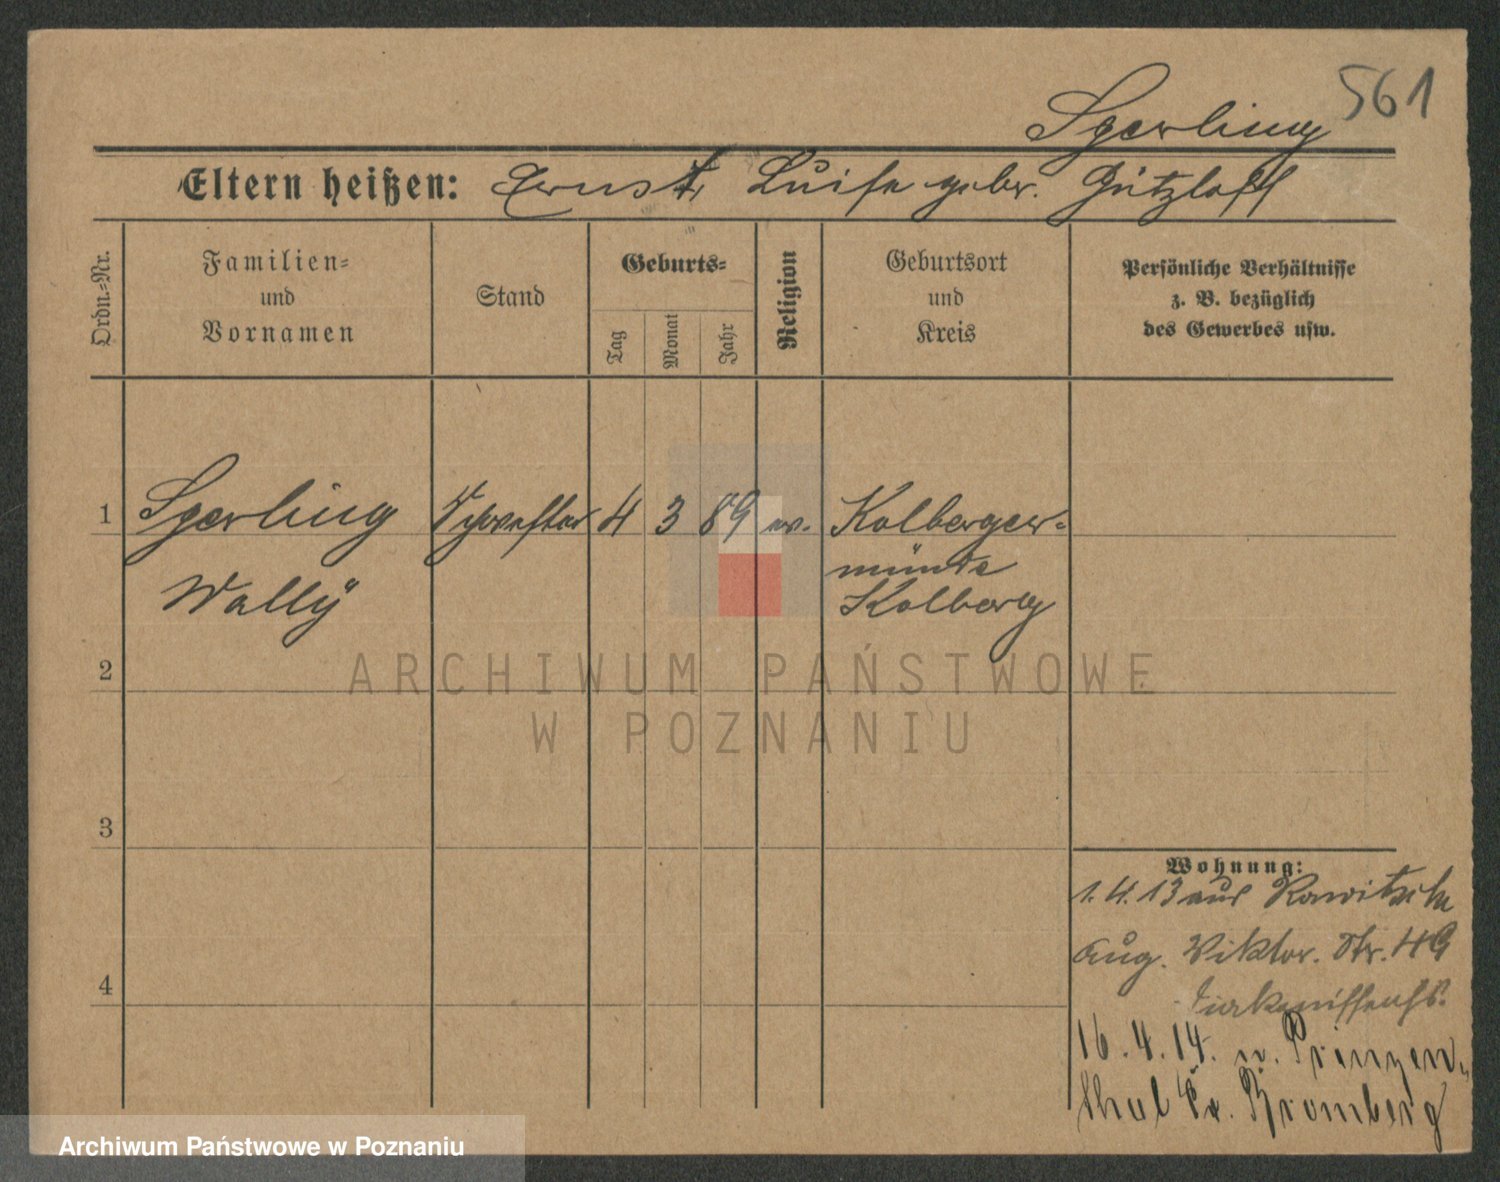 561
Sperling
Eltern heißen: Ernst, Luise gebr. Gützlaff
Ordn.=Nr.
Familien=
und
Vornamen
Stand
Geburts=
Tag
Monat
Jahr
Religion
Geburtsort
und
Kreis
Persönliche Verhältnisse
z. B. bezüglich
des Gewerbes usw.
1 Sperling Schwester 4 3 89 ev. Kolberger=
münde
Wally Kolberg
2
ARCHIWUM PAŃSTWOWE
W POZNANIU
3
Wohnung:
1. 4. 13 aus Rawitsch
Aug. Viktor. Str. 49
4
16. 4. 14. n. Prinzen-
thal Kr. Bromberg
Archiwum Państwowe w Poznaniu